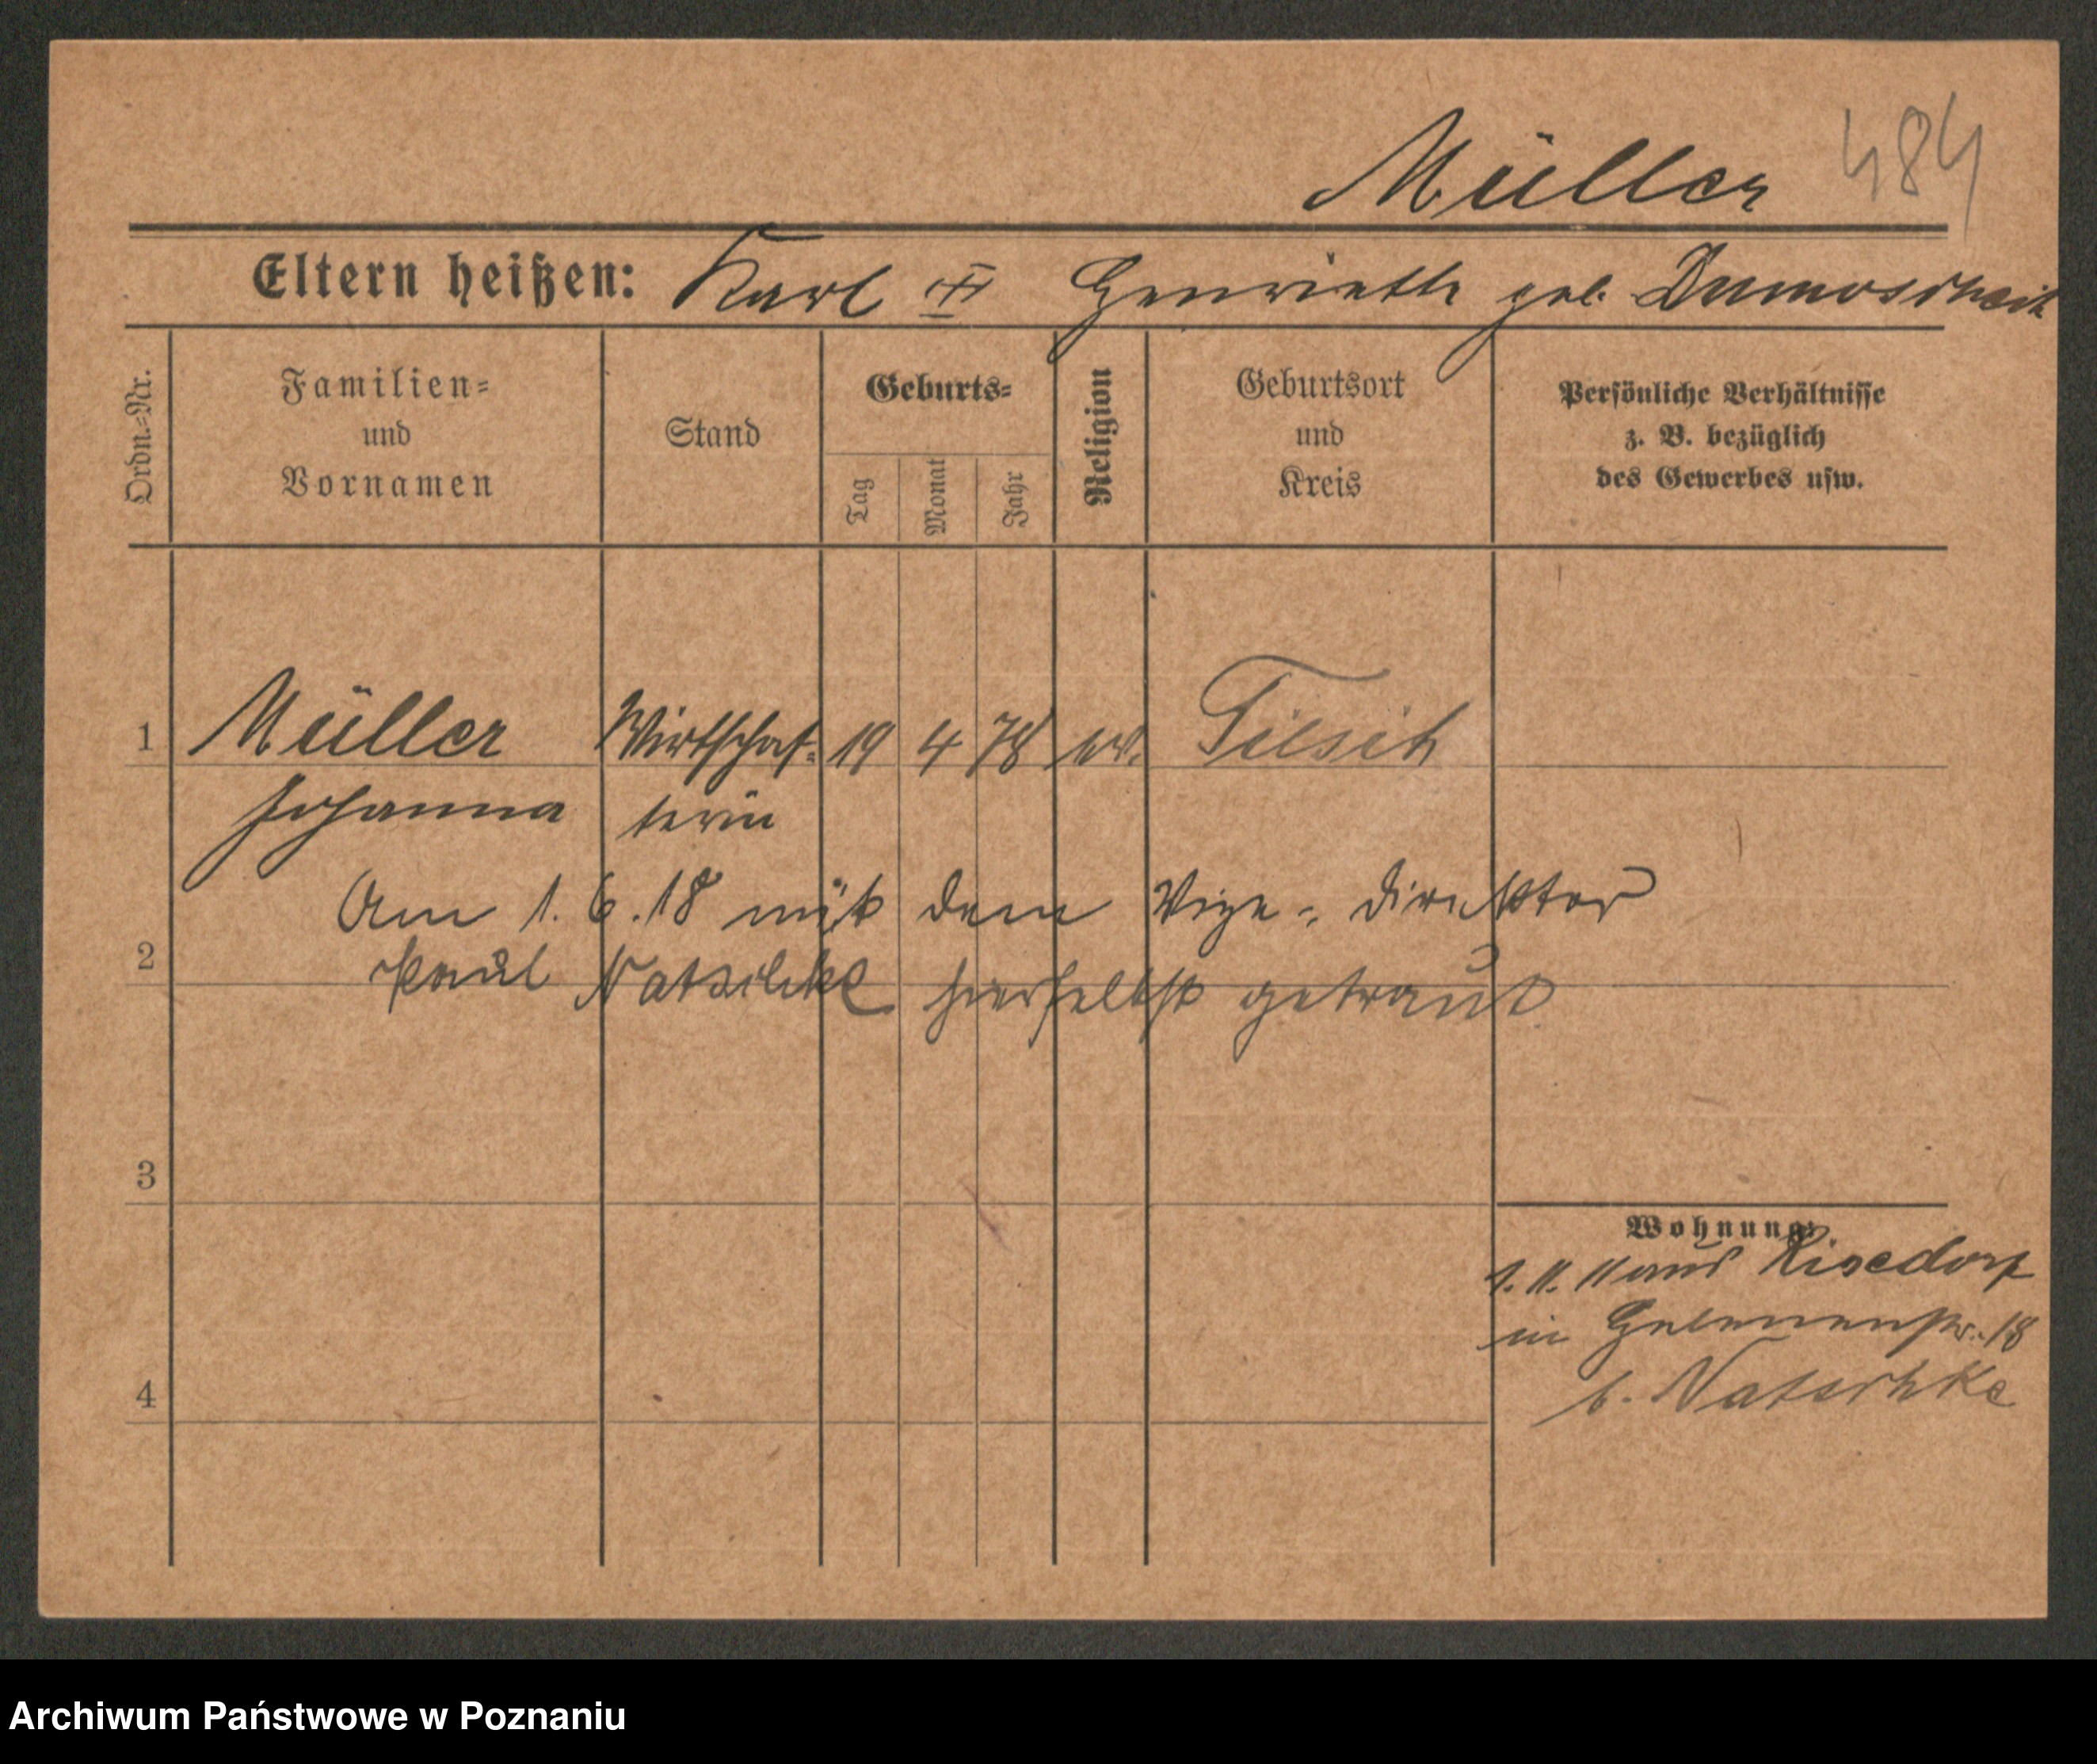 Müller 484
Eltern heißen: Karl Henriette geb.
Ordn.-Nr.
Familien-
und
Vornamen
Stand
Geburts-
Tag
Monat
Jahr
Religion
Geburtsort
und
Kreis
Persönliche Verhältnisse
z. B. bezüglich
des Gewerbes usw.
1 Müller Wirtschaf- 19 4 78 ev. Tilsit
Johanna terin
Am 1.6.18 mit dem Vize-Direktor
2
Paul Natschke hierselbst getraut
3
Wohnung:
1.11.11 aus Rixdorf
in 18
4
b. Natschke
Archiwum Państwowe w Poznaniu